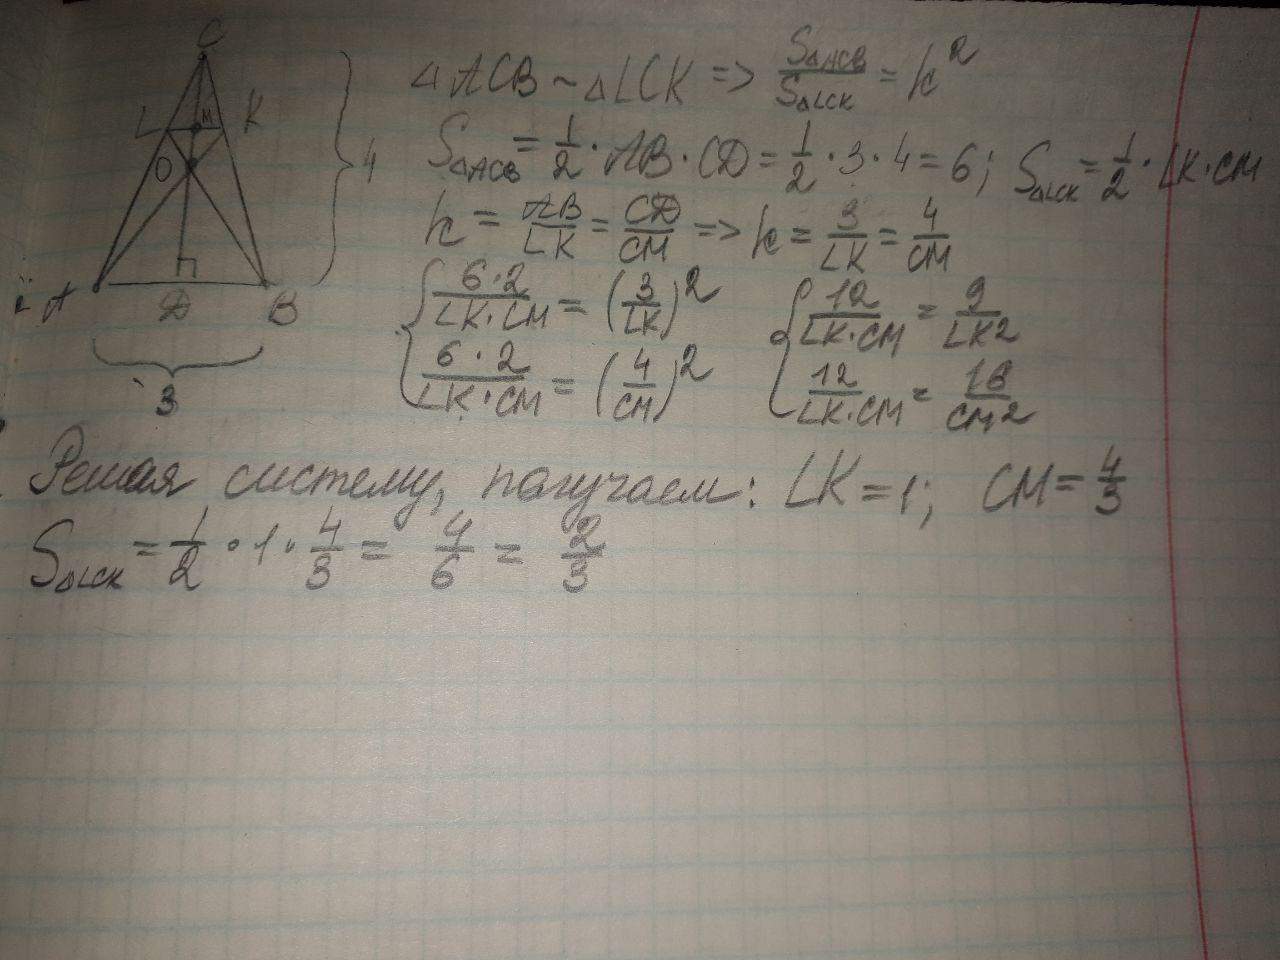 C
L M K
O
4
A D B
3
△ACB ~ △LCK => S△ACB/S△LCK = k²
S△ACB = 1/2 · AB · CD = 1/2 · 3 · 4 = 6; S△LCK = 1/2 · LK · CM
k = AB/LK = CD/CM => k = 3/LK = 4/CM
{ 6·2/LK·CM = (3/LK)² { 12/LK·CM = 9/LK2
6·2/LK·CM = (4/CM)² 12/LK·CM = 16/CM2
Решая систему, получаем: LK = 1; CM = 4/3
S△LCK = 1/2 · 1 · 4/3 = 4/6 = 2/3